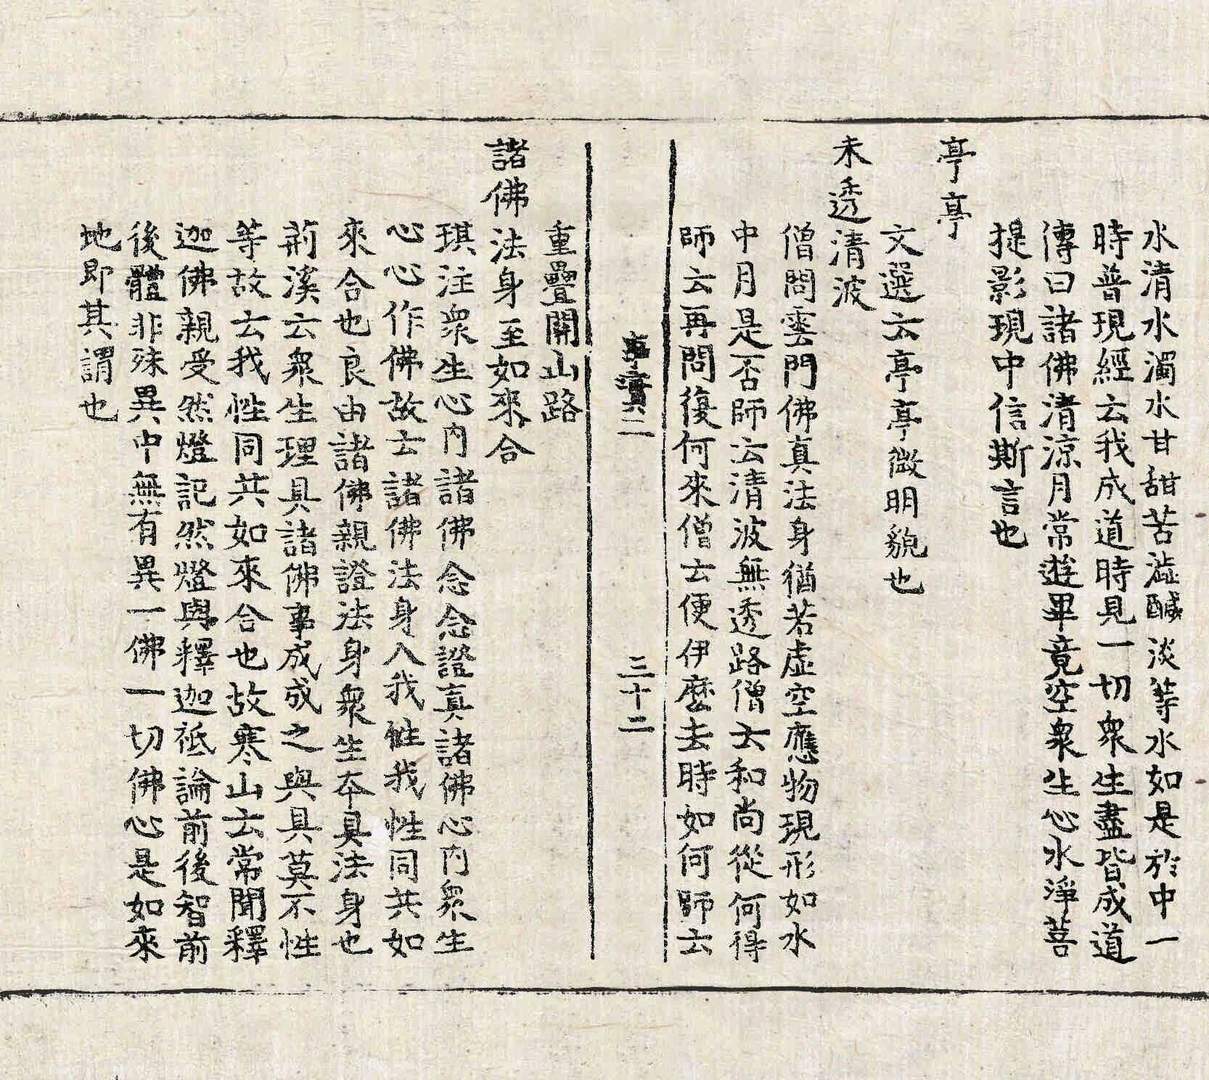 水清水濁水甘甜苦澁醎淡等水如是於中一
時普現經云我成道時見一切衆生盡皆成道
傳曰諸佛清涼月常遊畢竟空衆生心水淨菩
提影現中信斯言也
亭亭
文選云亭亭微明貌也
未透清波
僧問雲門佛真法身猶若虛空應物現形如水
中月是否師云清波無透路僧云和尚從何得
師云再問復何來僧云便伊麼去時如何師云
二
三十二
重疊關山路
諸佛法身至如來合
琪注衆生心內諸佛念念證真諸佛心內衆生
心心作佛故云諸佛法身入我性我性同共如
來合也良由諸佛親證法身衆生本具法身也
荊溪云衆生理具諸佛事成成之與具莫不性
等故云我性同共如來合也故寒山云常聞釋
迦佛親受然燈記然燈與釋迦祗論前後智前
後體非殊異中無有異一佛一切佛心是如來
地即其謂也